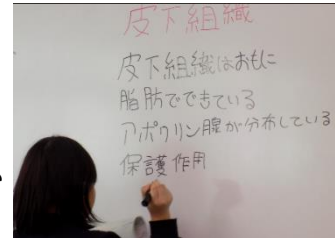 皮下組織
皮下組織はおもに
脂肪でできている
アポクリン腺が分布している
保護作用